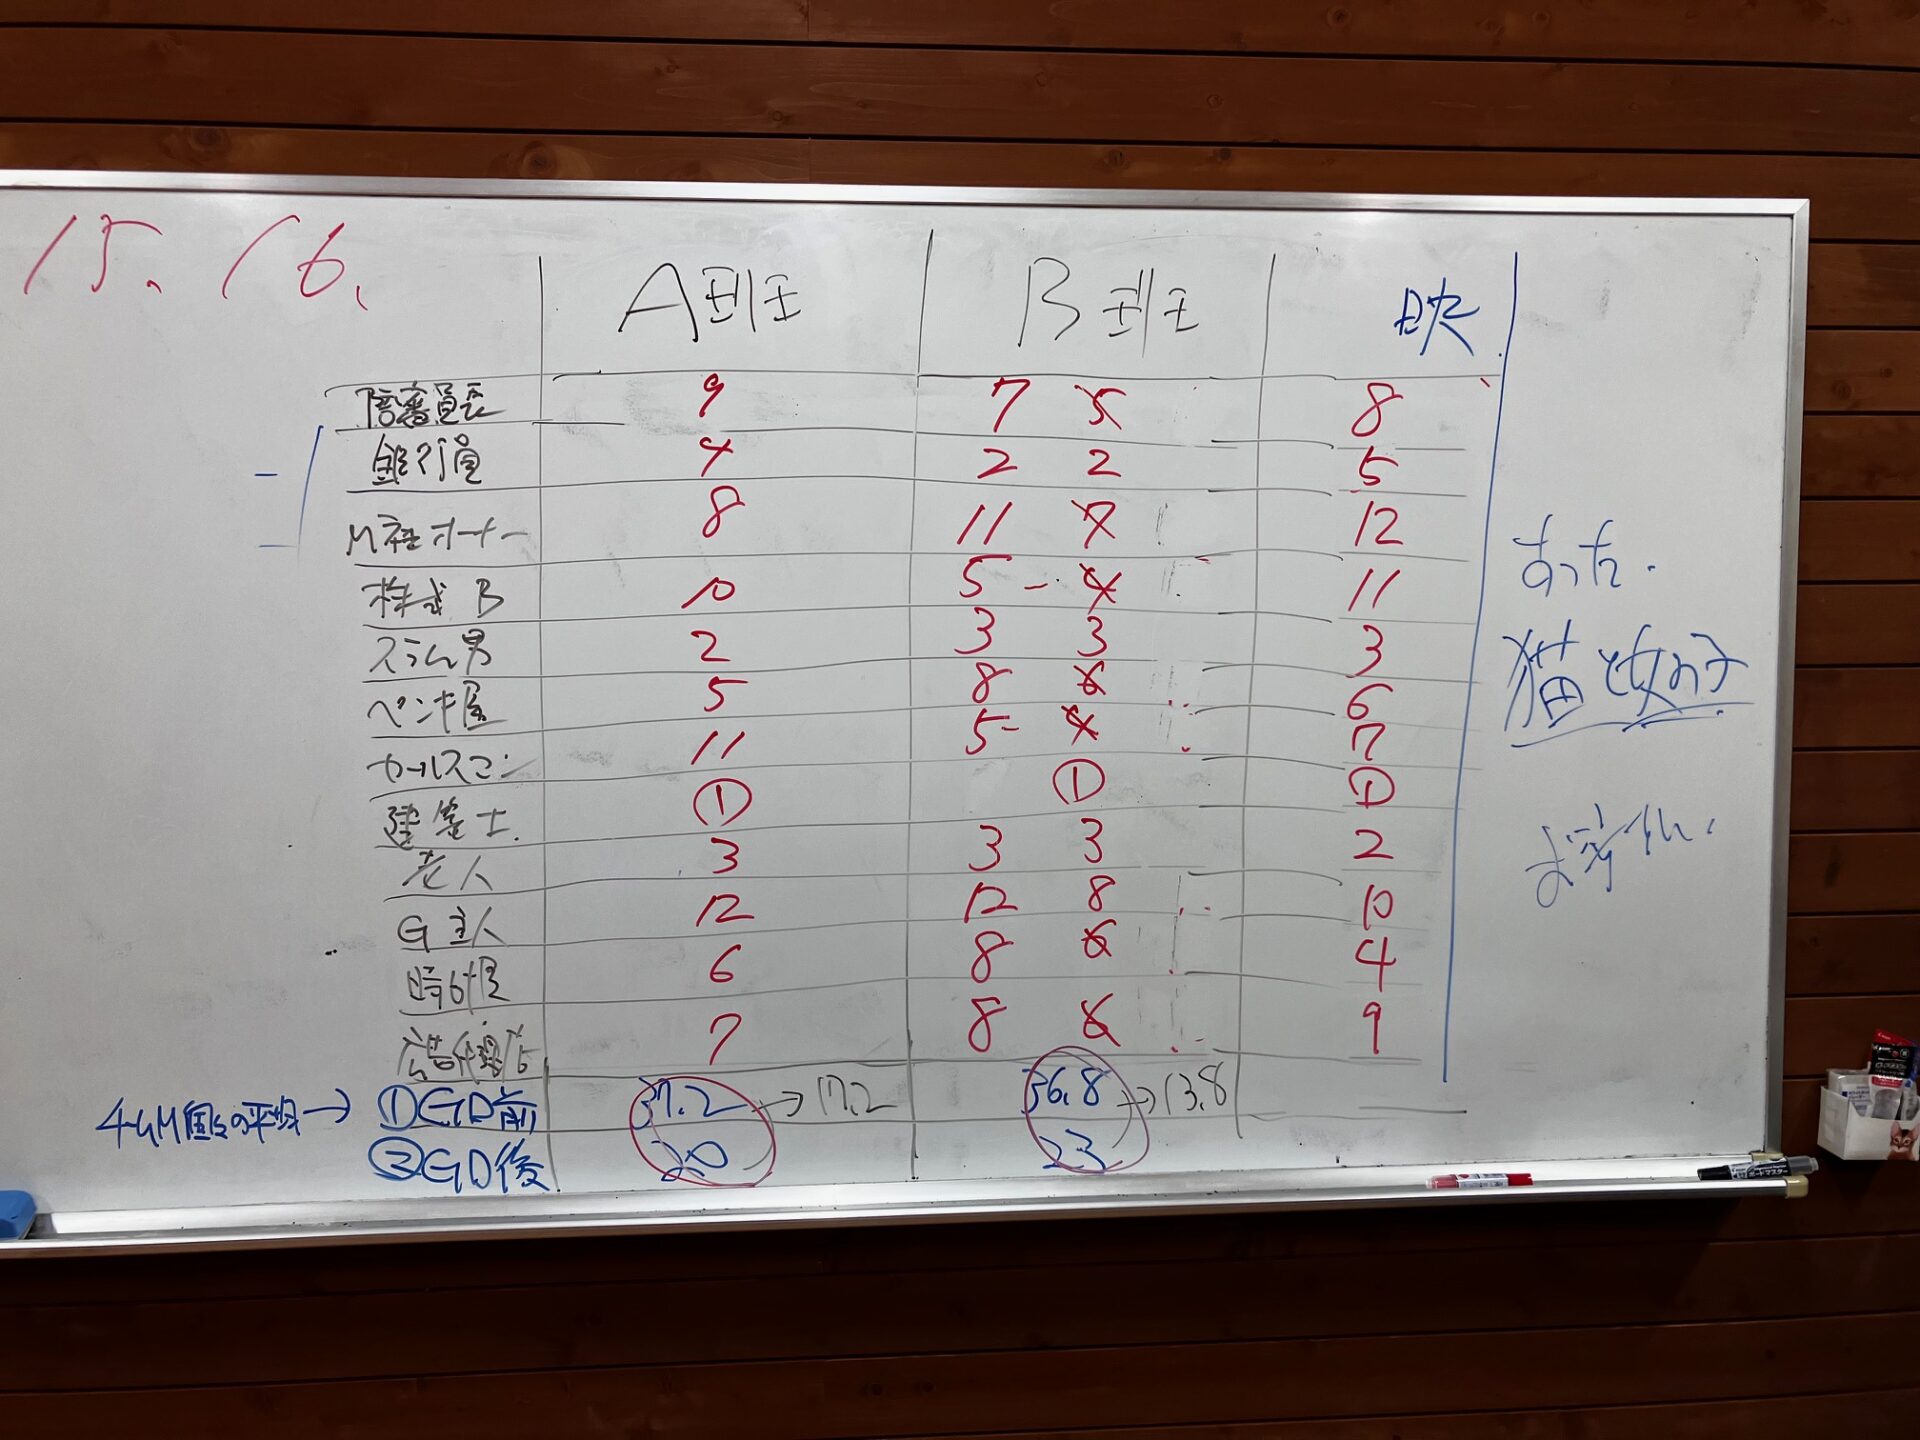 15. 16.
A班 B班 映
陪審員長 9 7 5 8
銀行員 4 2 2 5
M社オーナー 8 11 7 12
株式 B 10 5 - 4 11
スラム男 2 3 3 3
ペンキ屋 5 8 6 6
セールスマン 11 5- 4 7
建築士. ① ① ①
老人 3 3 3 2
G主人 12 12 8 10
時計屋 6 8 6 4
広告代理店 7 8 6 9
チーム個々の平均→ ①GD前 37.2 →17.2 36.8 →13.8
②GD後 20 23
猫と女の子